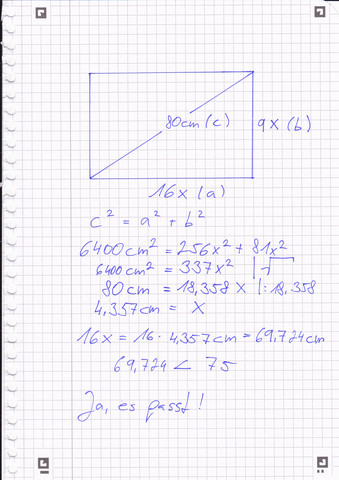 80cm (c)
9x (b)
16x (a)
c² = a² + b²
6400cm² = 256x² + 81x²
6400cm² = 337x² |√
80cm = 18,358 x |:18,358
4,357cm = x
16x = 16 · 4,357cm = 69,724cm
69,724 < 75
Ja, es passt!